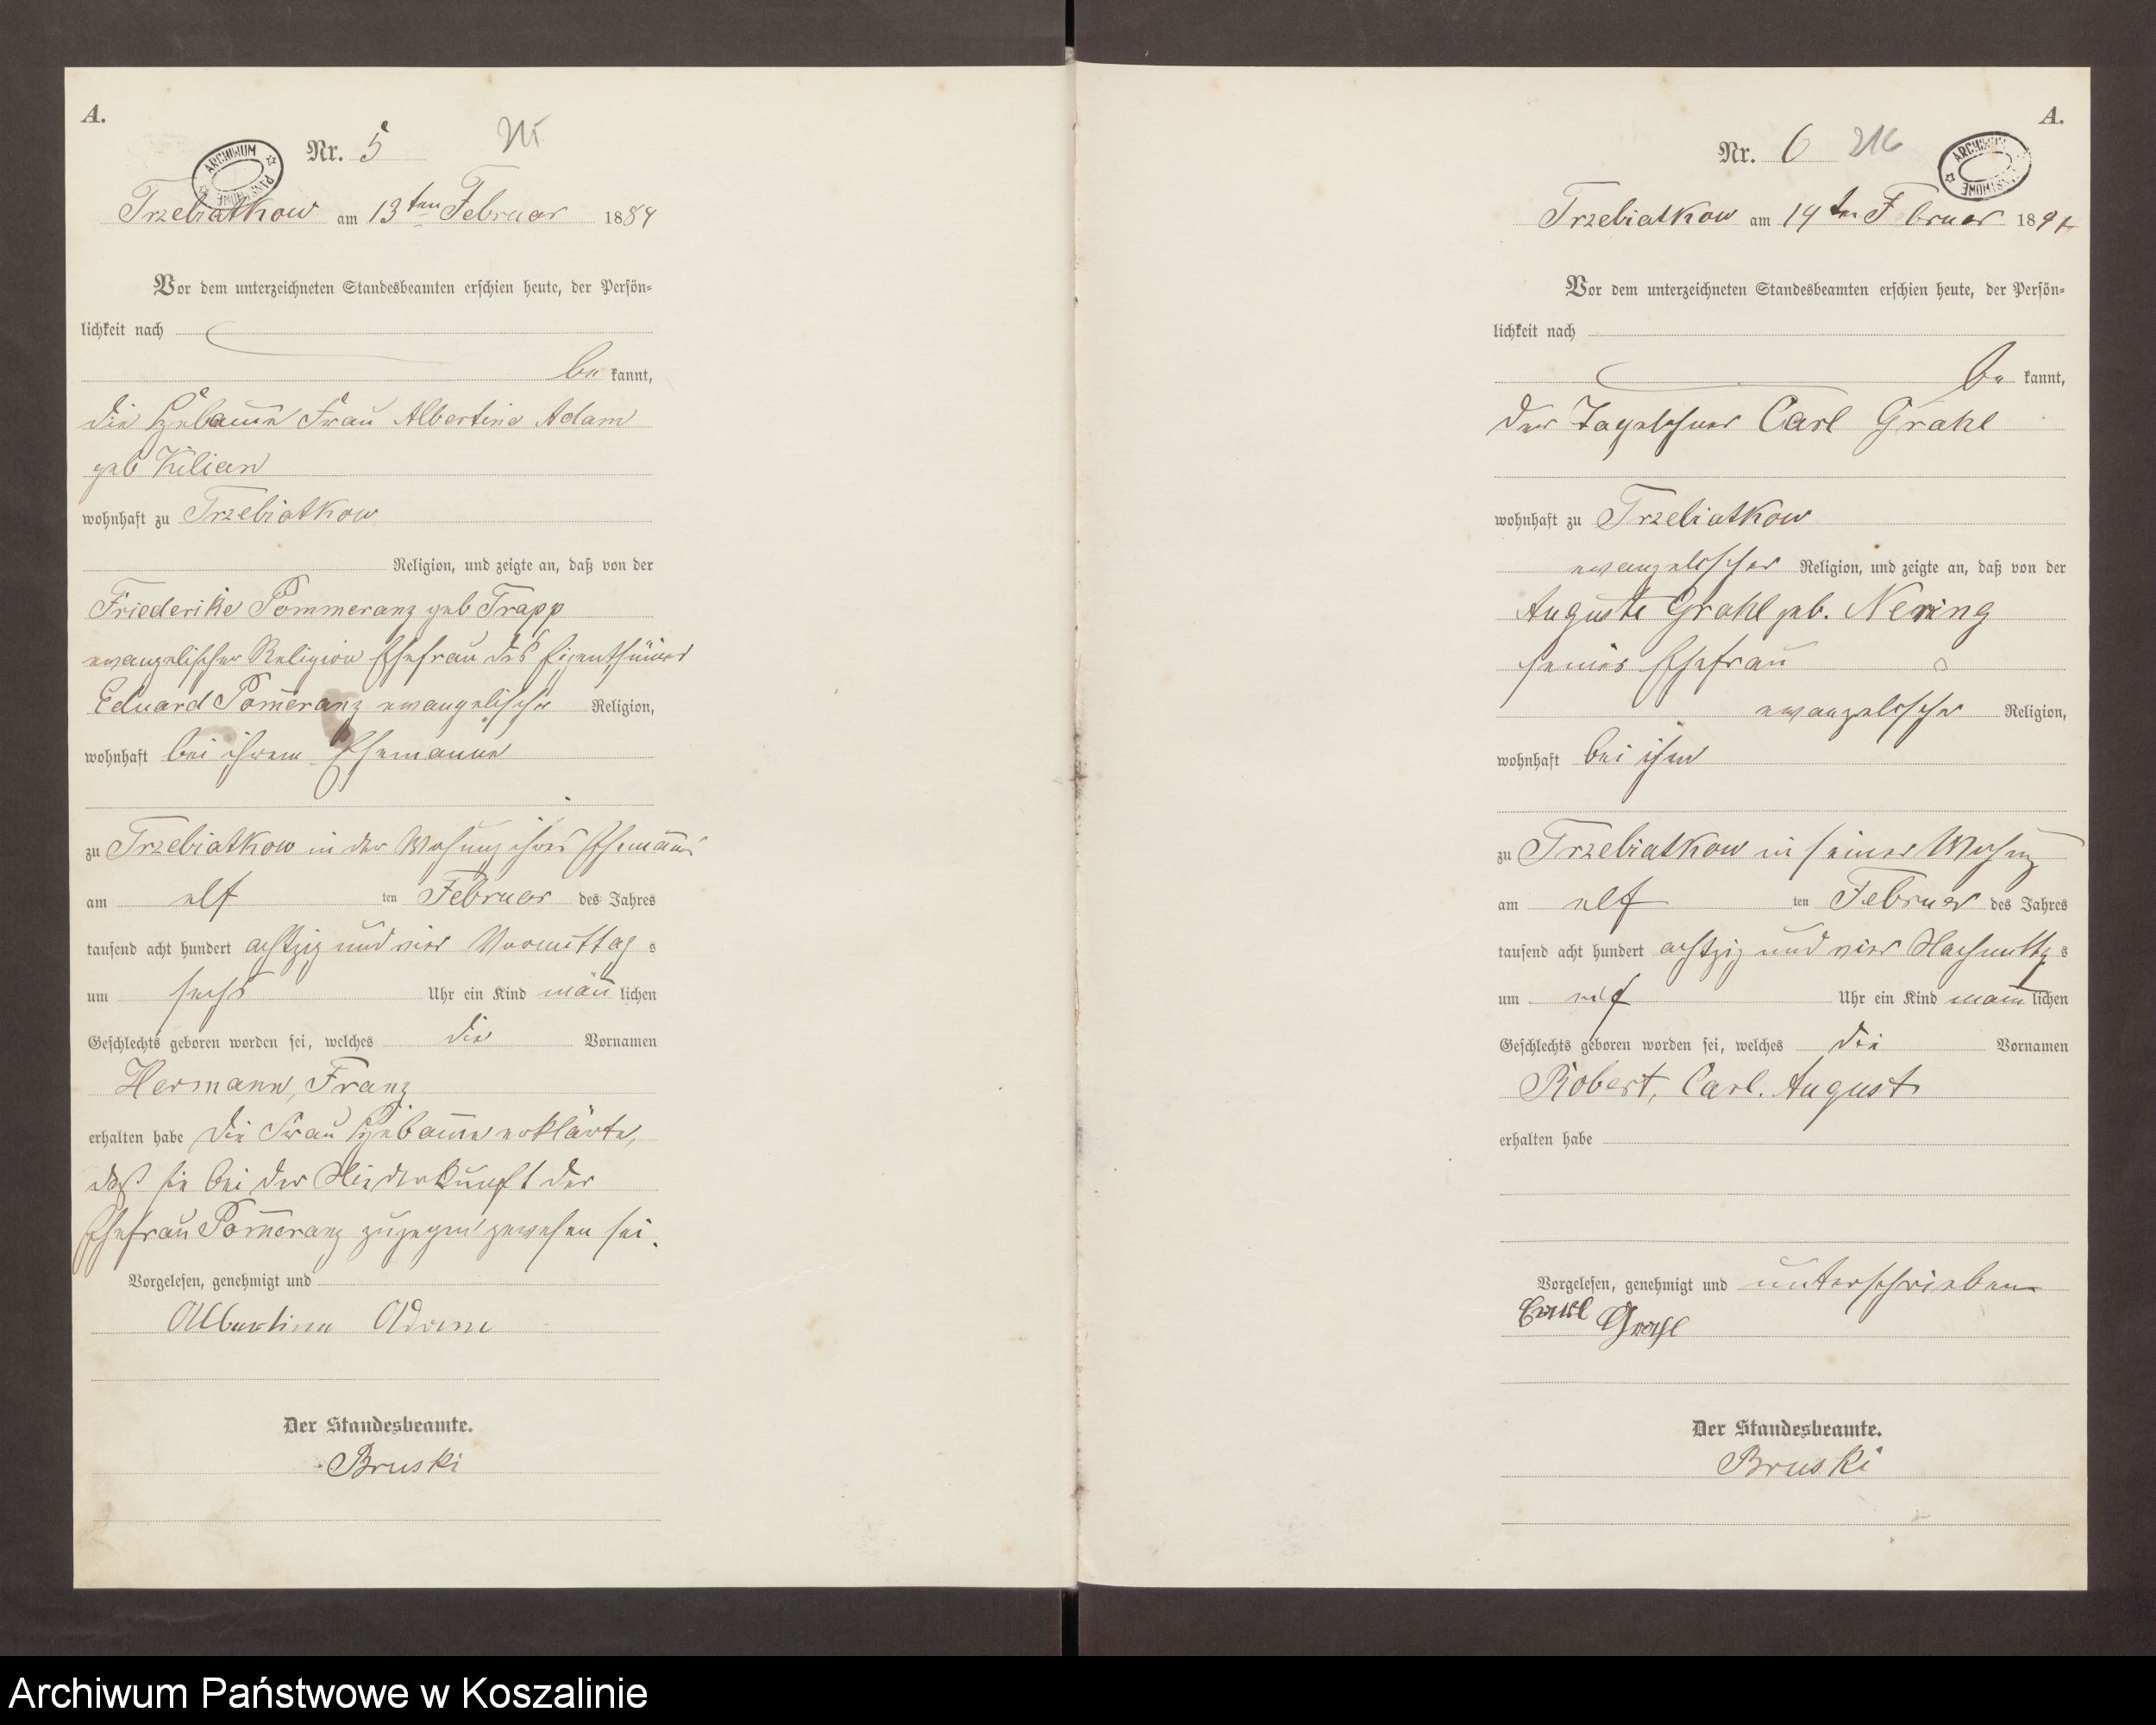 A.
Nr. 5
215
ARCHIWUM PAŃSTWOWE
Trzebiatkow am 13ten Februar 1884
Vor dem unterzeichneten Standesbeamten erschien heute, der Persön-
lichkeit nach
be kannt,
die Hebam̄e Frau Albertine Adam
geb Kilian
wohnhaft zu Trzebiatkow
Religion, und zeigte an, daß von der
Friederike Pommeranz geb Trapp
evangelischer Religion Ehefrau des Eigenthümer
Eduard Pom̄eranz evangelischer Religion,
wohnhaft bei ihrem Ehemanne
zu Trzebiatkow in der Wohnung ihres Ehemān̄es
am elf ten Februar des Jahres
tausend acht hundert achtzig und vier Vormittag s
um sechs Uhr ein Kind män̄ lichen
Geschlechts geboren worden sei, welches die Vornamen
Hermann, Franz
erhalten habe Die Frau Hebam̄e erklärte,
daß sie bei der Niederkunft der
Ehefrau Pom̄eranz zugegen gewesen sei.
Vorgelesen, genehmigt und
Albertine Adam
Der Standesbeamte.
Bruski
A.
Nr. 6
216
ARCHIWUM PAŃSTWOWE
Trzebiatkow am 14ten Februar 1884
Vor dem unterzeichneten Standesbeamten erschien heute, der Persön-
lichkeit nach
be kannt,
der Tagelöhner Carl Grahl
wohnhaft zu Trzebiatkow
evangelischer Religion, und zeigte an, daß von der
Auguste Grahl geb. Nering
seiner Ehefrau
evangelischer Religion,
wohnhaft bei ihm
zu Trzebiatkow in seiner Wohnung
am elf ten Februar des Jahres
tausend acht hundert achtzig und vier Nachmittag s
um elf Uhr ein Kind män̄ lichen
Geschlechts geboren worden sei, welches die Vornamen
Robert, Carl. August
erhalten habe
Vorgelesen, genehmigt und unterschrieben
Carl Grahl
Der Standesbeamte.
Bruski
Archiwum Państwowe w Koszalinie